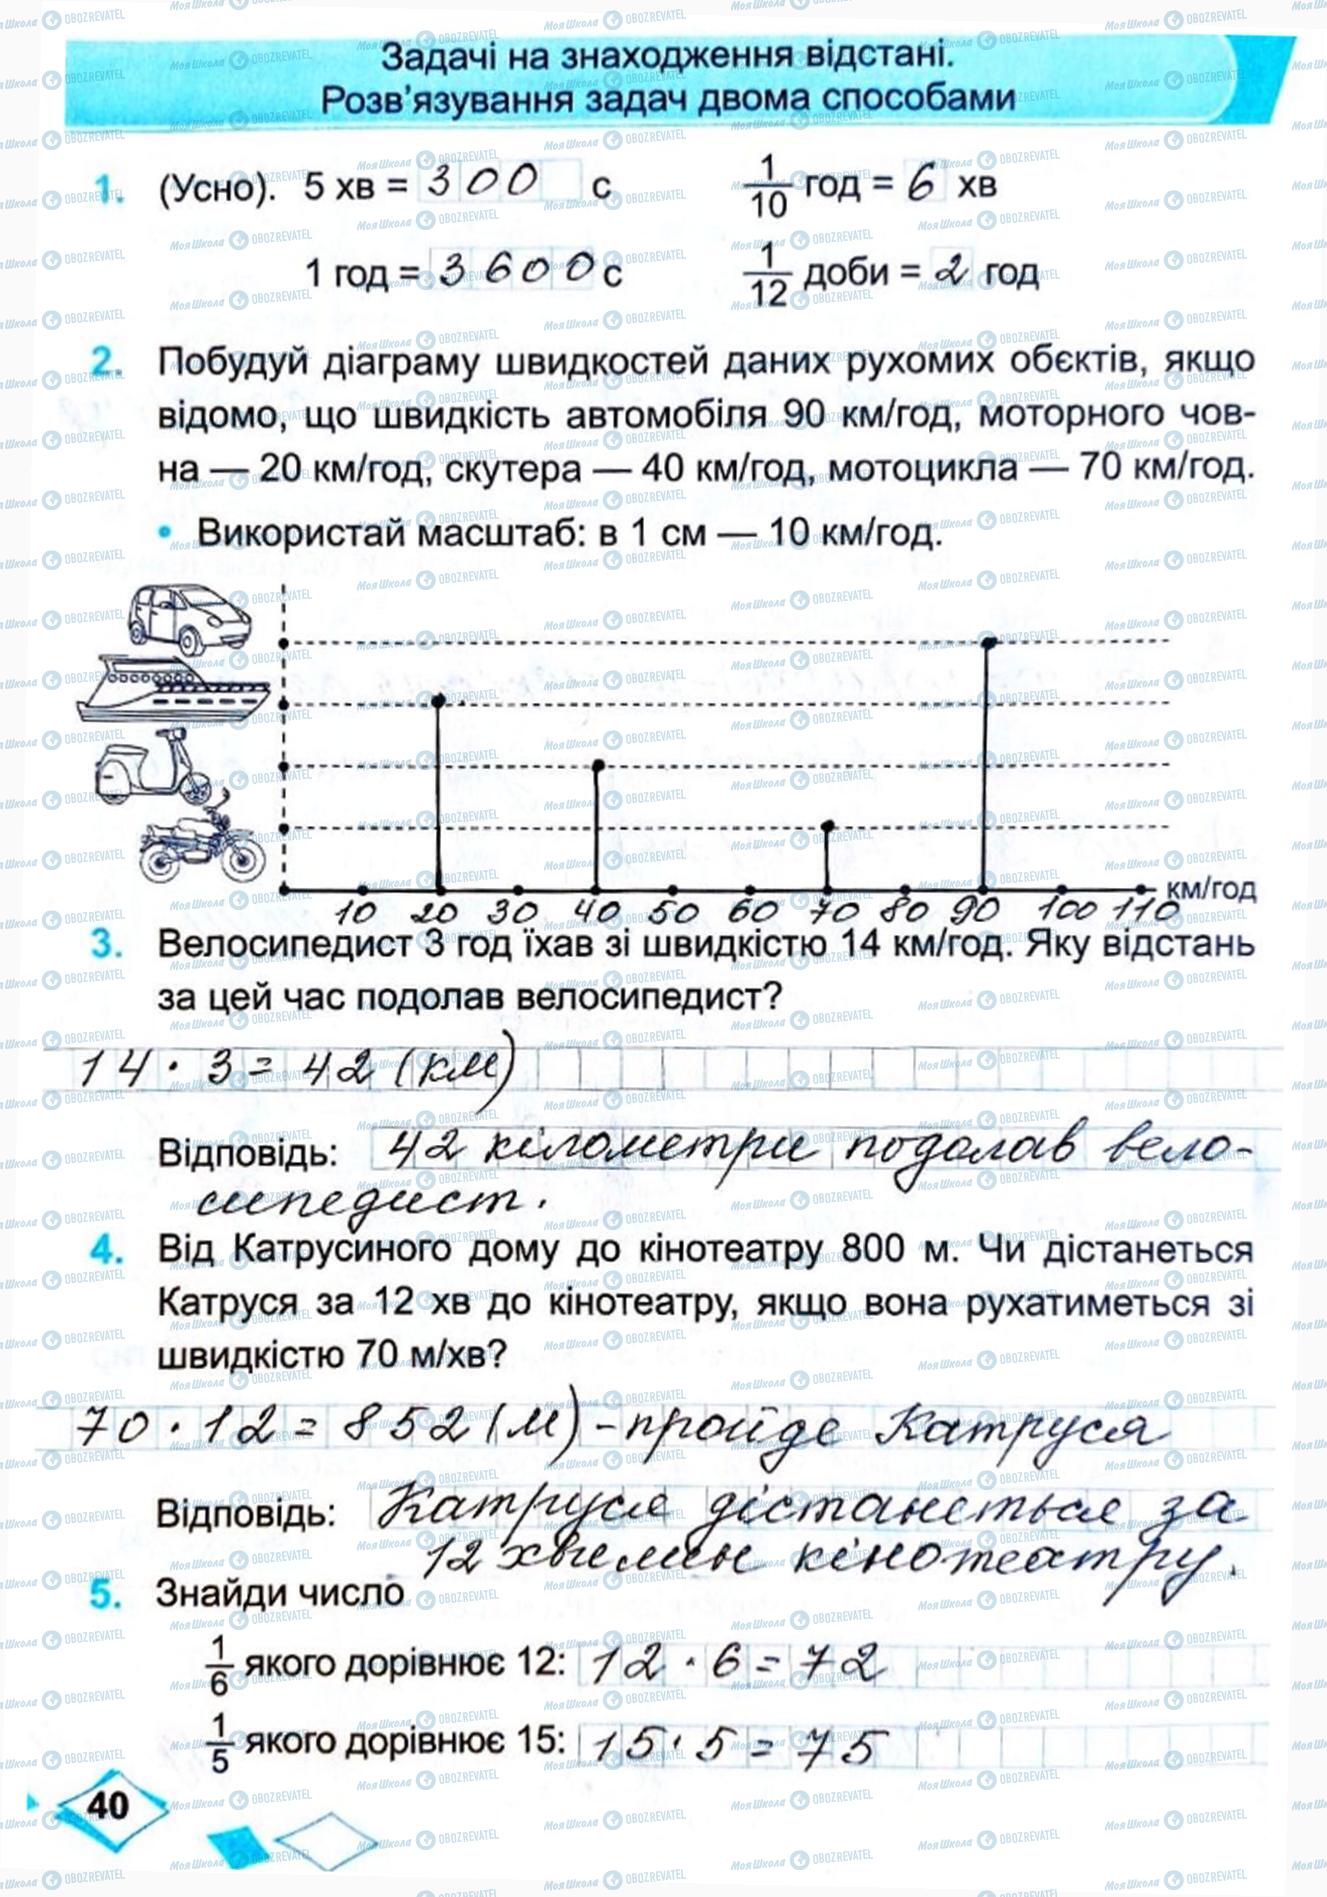 Задачі на знаходження відстані.
Розв'язування задач двома способами
1. (Усно). 5 хв = 300 с 1/10 год = 6 хв
1 год = 3600 с 1/12 доби = 2 год
2. Побудуй діаграму швидкостей даних рухомих обєктів, якщо
відомо, що швидкість автомобіля 90 км/год, моторного чов-
на — 20 км/год, скутера — 40 км/год, мотоцикла — 70 км/год.
• Використай масштаб: в 1 см — 10 км/год.
км/год
10 20 30 40 50 60 70 80 90 100 110
3. Велосипедист 3 год їхав зі швидкістю 14 км/год. Яку відстань
за цей час подолав велосипедист?
14 · 3 = 42 (км)
Відповідь: 42 кілометри подолав вело-
сипедист.
4. Від Катрусиного дому до кінотеатру 800 м. Чи дістанеться
Катруся за 12 хв до кінотеатру, якщо вона рухатиметься зі
швидкістю 70 м/хв?
70 · 12 = 852 (м) - пройде Катруся
Відповідь: Катруся дістанеться за
12 хвилин кінотеатру.
5. Знайди число
1/6 якого дорівнює 12: 12 · 6 = 72
1/5 якого дорівнює 15: 15 · 5 = 75
40
Моя Школа OBOZREVATEL